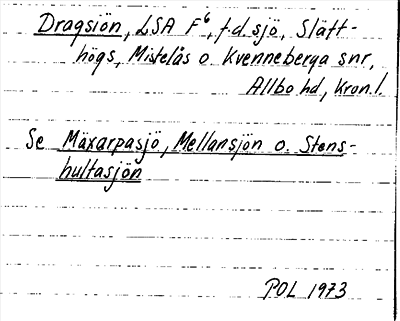 Dragsiön, LSA F⁶, f.d. sjö, Slätt-
högs, Mistelås o. Kvenneberga snr,
Allbo hd, Kron.l.
Se Mäxarpasjö, Mellansjön o. Stens-
hultasjön
POL 1973